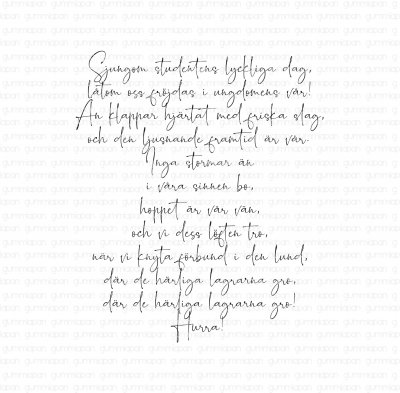 Sjungom studentens lyckliga dag,
låtom oss fröjdas i ungdomens vår!
Än klappar hjärtat med friska slag,
och den ljusnande framtid är vår.
Inga stormar än
i våra sinnen bo,
hoppet är vår vän,
och vi dess löften tro,
när vi knyta förbund i den lund,
där de härliga lagrarna gro,
där de härliga lagrarna gro!
Hurra!